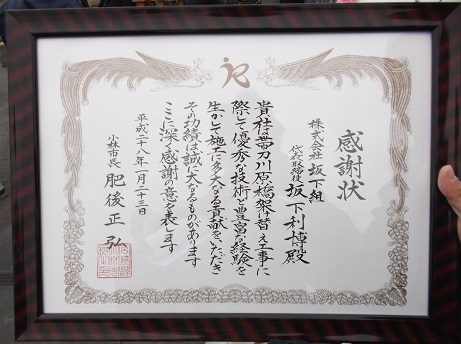 感謝状
株式会社 坂下組
代表取締役 坂下利博殿
貴社は帯刀川原橋架け替え工事に
際して優秀な技術と豊富な経験を
生かして施工に多大なる貢献をいただき
その功績は誠に大なるものがあります
ここに深く感謝の意を表します
平成二十八年一月二十三日
小林市長 肥後正弘